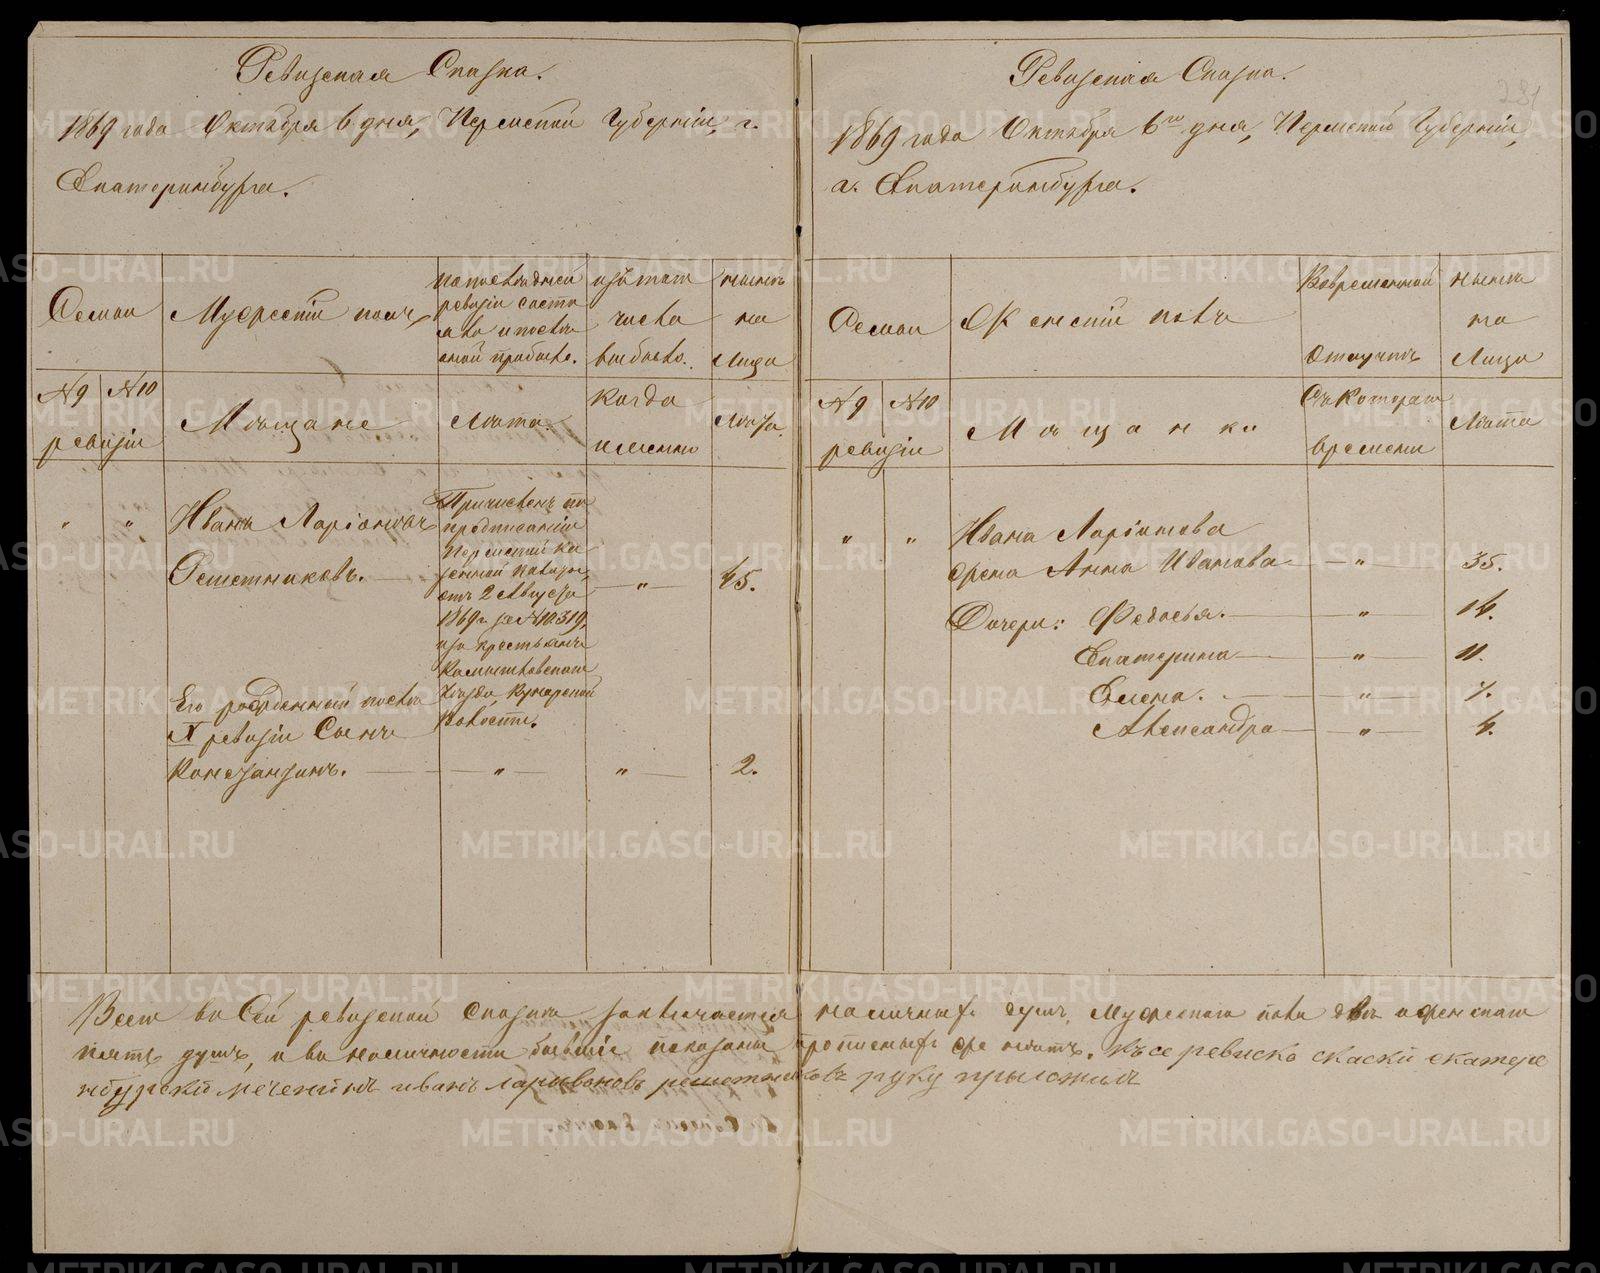 Ревизская Сказка.
1869 года Октября 6 дня, Пермской Губерніи, г.
Екатеринбурга.
Семьи
Мужескій полъ
По последней
ревизіи состо
яло и после
оной прибыло.
изъ того
числа
выбыло.
ныне
на
Лицо
№ 9 № 10
ревизіи
Мѣщане
Лѣта.
когда
именно
Лѣта.
" "
Иванъ Ларіоновъ
Решетниковъ.
Причисленъ по
предписанію
Пермской ка
зенной палаты,
отъ 2 Августа
1869 г. за № 10319,
изъ крестьянъ
Камышловскаго
Уезда, Куяровской
Волости.
"
45.
Его рожденный после
X ревизіи Сынъ
Константинъ.
" "
2.
Ревизская Сказка.
1869 года Октября 6го дня, Пермской Губерніи,
г. Екатеринбурга.
Семьи
Женскій полъ
Вовременной
Отлучке
ныне
на
Лицо
№ 9 № 10
ревизіи
Мѣщанки
Съ Котораго
времени
Лѣта
" "
Ивана Ларіонова
жена Анна Иванова " 35.
Дочери: Федосья. " 16.
Екатерина " 11.
Елена. " 7.
Александра " 4.
Всего въ Сей ревизской Сказке заключается наличныхъ душъ, Мужескаго пола две а женскаго
пять душъ, а въ наличности бывшіе показаны прописныхъ же нетъ. Късе ревиско скаски екатере
нбурский мещенинъ иванъ ларивоновъ решетниковъ руку прыложилъ
METRIKI.GASO-URAL.RU